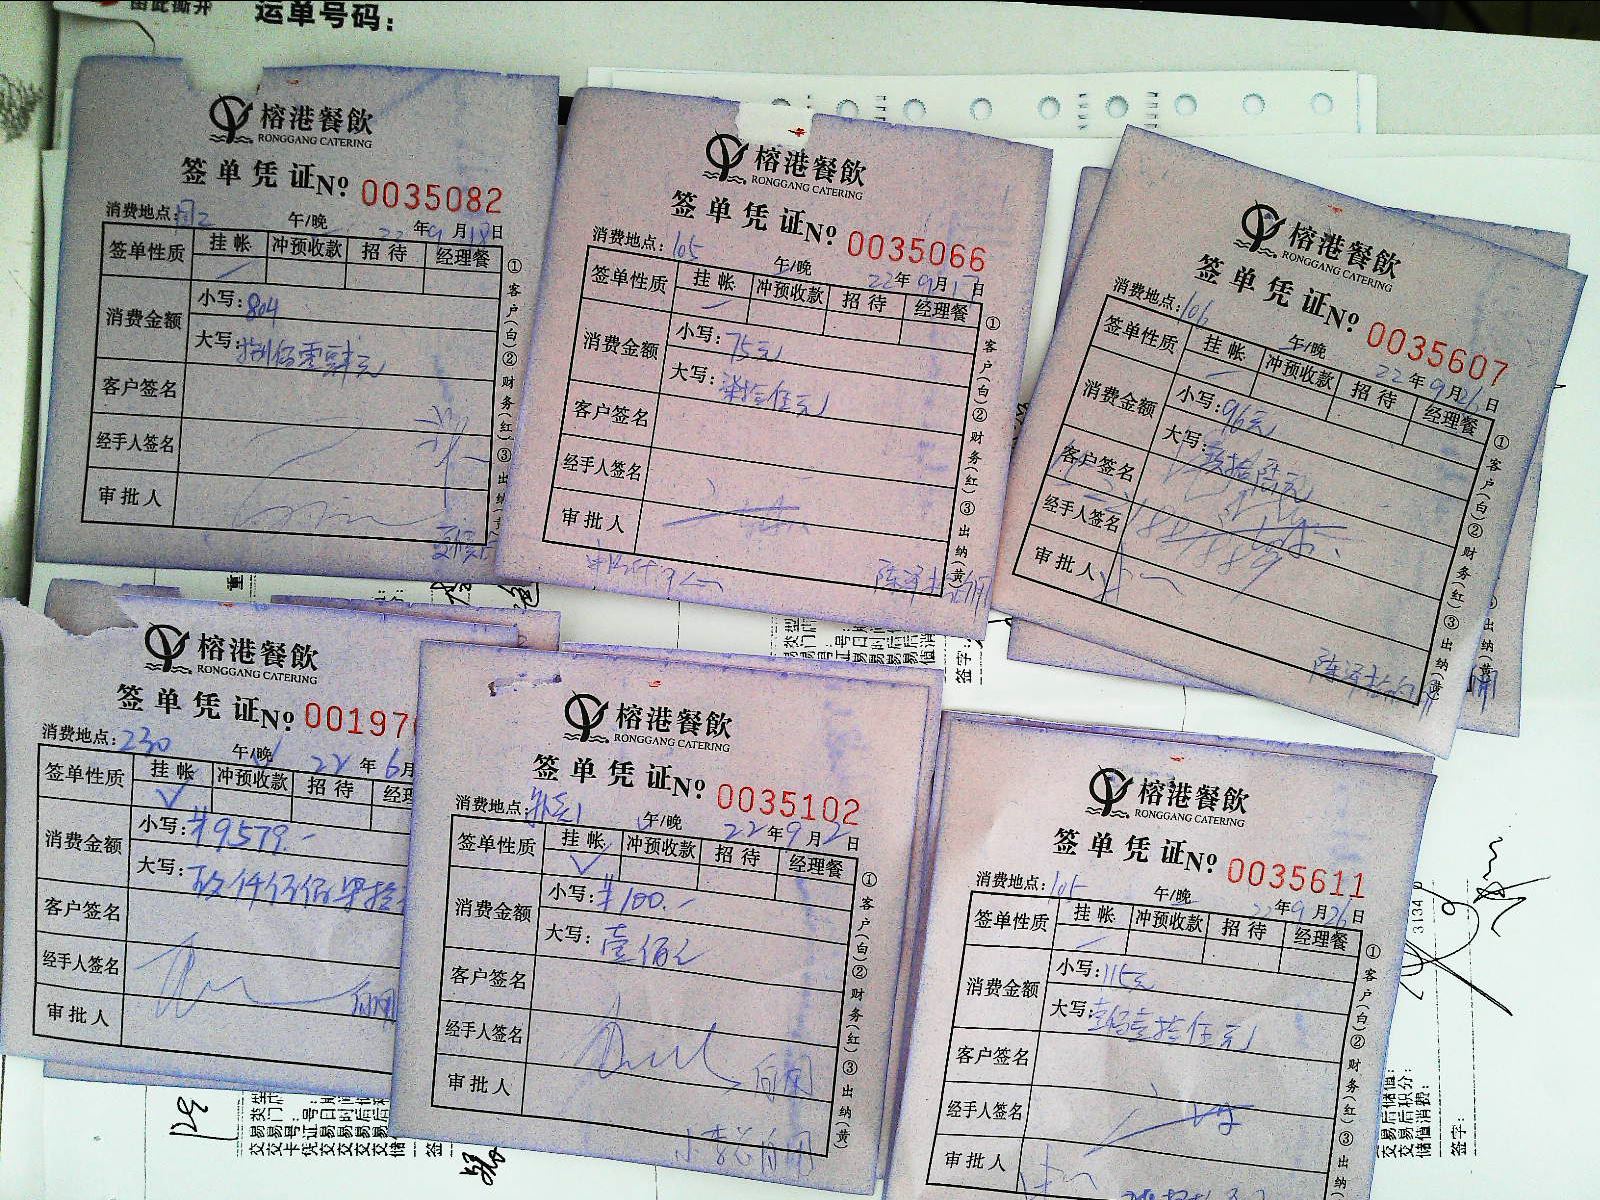 由此撕开
运单号码:
榕港餐飲
RONGGANG CATERING
签单凭证 No 0035082
消费地点:
午/晚 22年9月18日
签单性质 挂帐 冲预收款 招待 经理餐
消费金额 小写: 804
大写: 捌佰零肆元
客户签名
经手人签名
审批人
①客户(白)②财务(红)③出纳(黄)
榕港餐飲
RONGGANG CATERING
签单凭证 No 0035066
消费地点: 105
午/晚 22年9月1日
签单性质 挂帐 冲预收款 招待 经理餐
消费金额 小写: 75元
大写: 柒拾伍元
客户签名
经手人签名
审批人
①客户(白)②财务(红)③出纳(黄)
榕港餐飲
RONGGANG CATERING
签单凭证 No 0035607
消费地点: 106
午/晚 22年9月26日
签单性质 挂帐 冲预收款 招待 经理餐
消费金额 小写: 96元
大写: 玖拾陆元
客户签名
经手人签名
审批人
①客户(白)②财务(红)③出纳(黄)
榕港餐飲
RONGGANG CATERING
签单凭证 No 00197
消费地点: 230
午/晚 22年6月
签单性质 挂帐 冲预收款 招待 经理
消费金额 小写: ¥9579.-
大写: 玖仟伍佰柒拾
客户签名
经手人签名
审批人
榕港餐飲
RONGGANG CATERING
签单凭证 No 0035102
消费地点:
午/晚 22年9月2日
签单性质 挂帐 冲预收款 招待 经理餐
消费金额 小写: ¥100.-
大写: 壹佰元
客户签名
经手人签名
审批人
①客户(白)②财务(红)③出纳(黄)
榕港餐飲
RONGGANG CATERING
签单凭证 No 0035611
消费地点: 105
午/晚 22年9月26日
签单性质 挂帐 冲预收款 招待 经理餐
消费金额 小写: 115元
大写: 壹佰壹拾伍元
客户签名
经手人签名
审批人
①客户(白)②财务(红)③出纳
签字:
3134
交易后储值:
交易后积分:
储值消费:
签字: